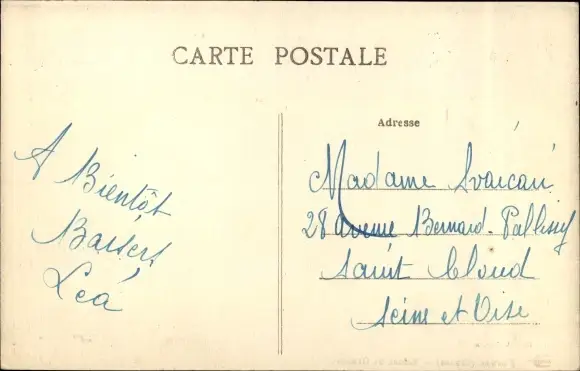 CARTE POSTALE
Adresse
A Bientôt
Baisers
Léa
Madame
28 avenue Bernard. Pallissy
Saint Cloud
Seine et Oise